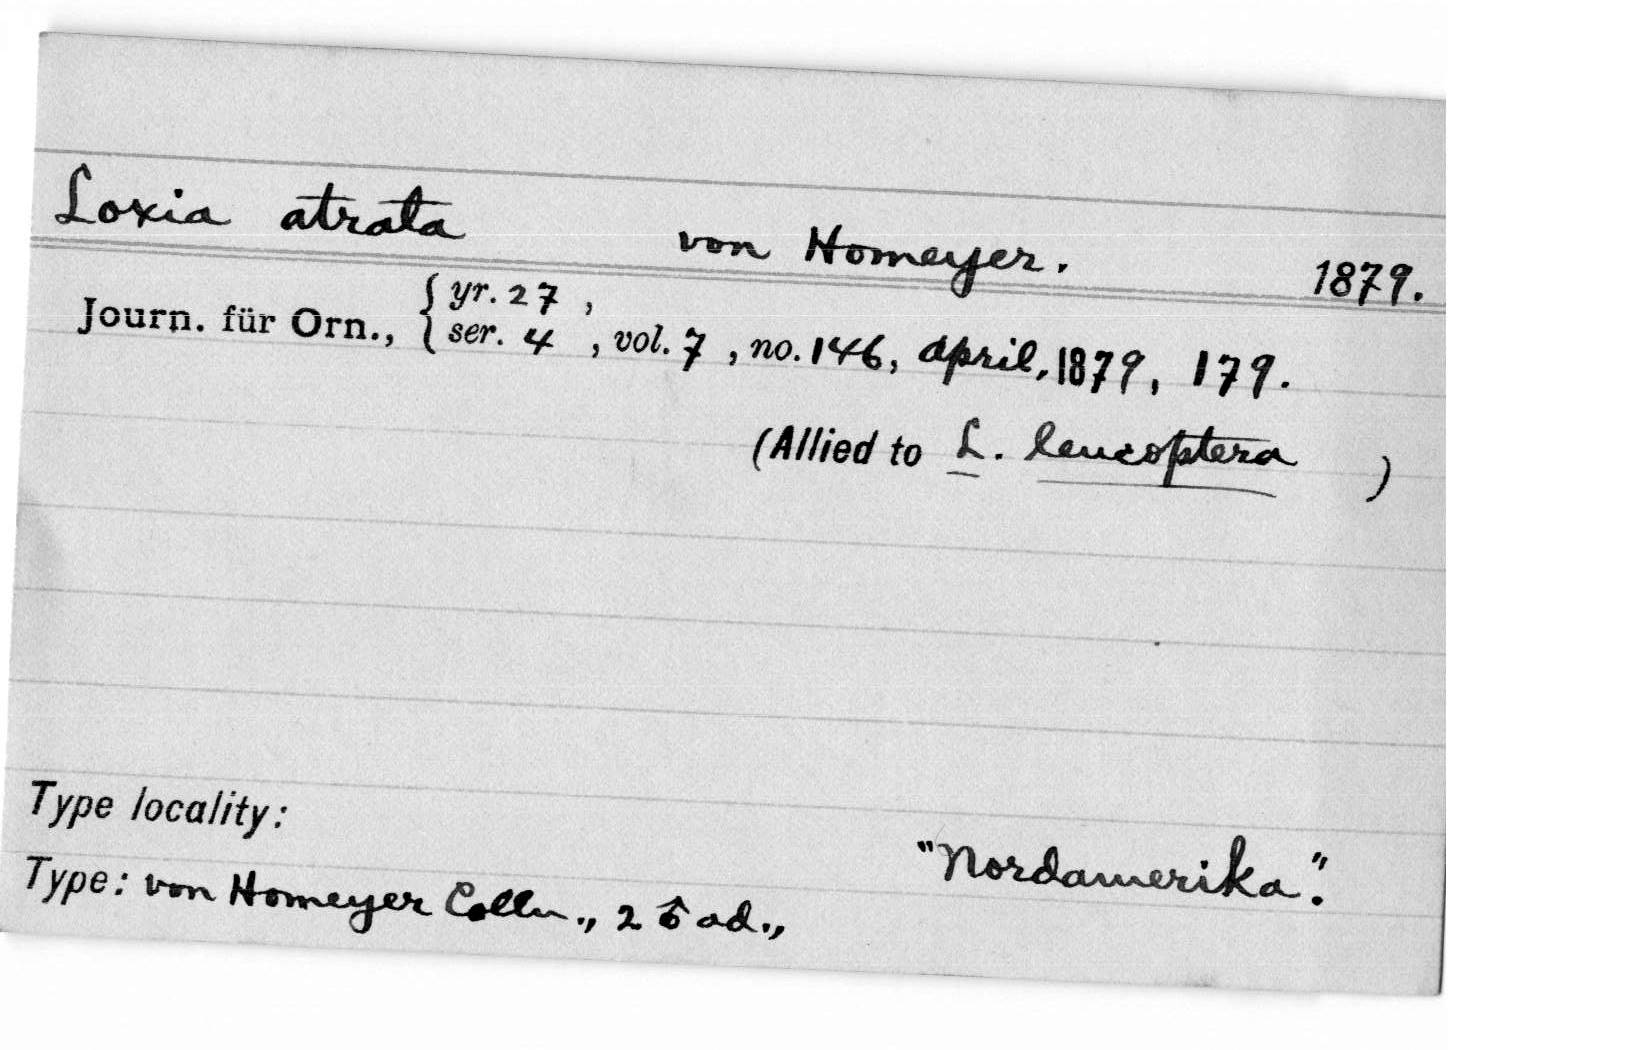 Loxia atrata von Homeyer. 1879.
Journ. für Orn., { yr. 27 ,
ser. 4 , vol. 7 , no. 146, April, 1879, 179.
(Allied to L. leucoptera )
Type locality:
"Nordamerika."
Type: von Homeyer Colln., 2 ♂ ad.,